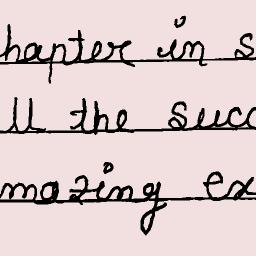 hapter in s
ll the succ
mazing ex